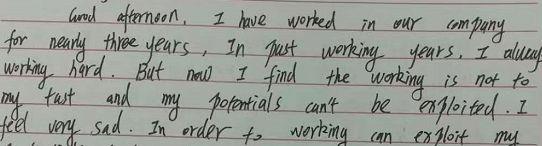 Good afternoon. I have worked in our company
for nearly three years, In past working years. I always
working hard. But now I find the working is not to
my tast and my potentials can't be exploited. I
feel very sad. In order to working can exploit my